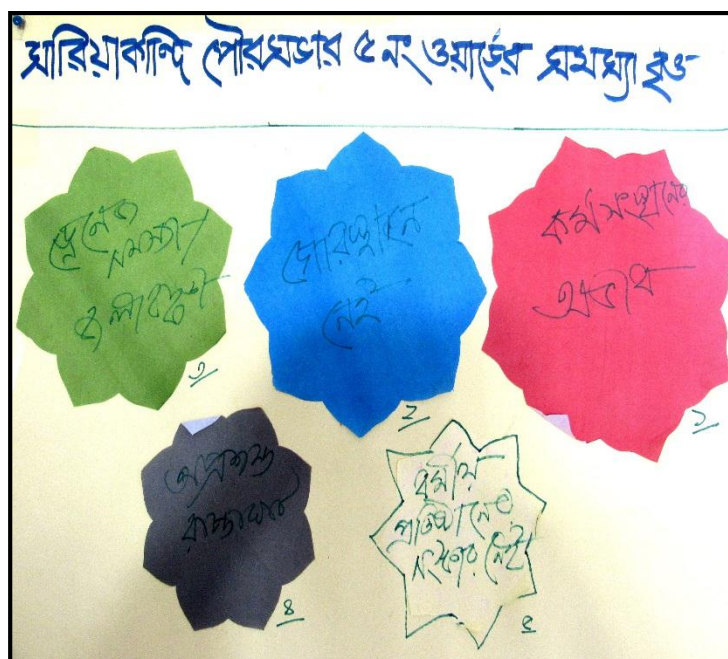 সারিয়াকান্দি পৌরসভার ৫ নং ওয়ার্ডের সমস্যা বৃত্ত
ড্রেনেজ
সমস্যা
জলাবদ্ধতা
৩
গোরস্থান
নেই
২
কর্মসংস্থানের
অভাব
১
অপ্রশস্ত
রাস্তাঘাট
৪
ধর্মীয়
প্রতিষ্ঠানের
সংস্কার নেই
৫